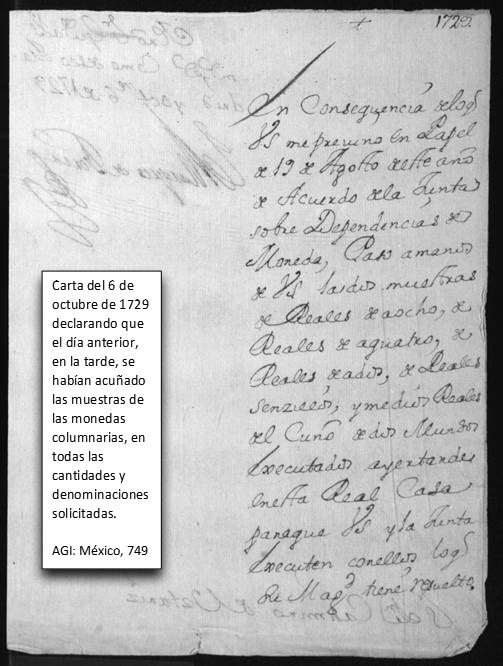 1729
En Consequencia delo q.
VS me previno en Papel
de 19 de Agosto deste año
de Acuerdo dela Junta
sobre Dependencias de
Moneda, Paso amanos
de VS lasdos muestras
de Reales de aocho, de
Reales de aquatro, de
Reales de ados, de Reales
senzillos, y medios Reales
del Cuño de dos Mundos
executados ayer tarde
enesta Real Casa
paraque VS y la Junta
executen conellos lo q.
Su Mag.d tiene resuelto.
Carta del 6 de
octubre de 1729
declarando que
el día anterior,
en la tarde, se
habían acuñado
las muestras de
las monedas
columnarias, en
todas las
cantidades y
denominaciones
solicitadas.
AGI: México, 749